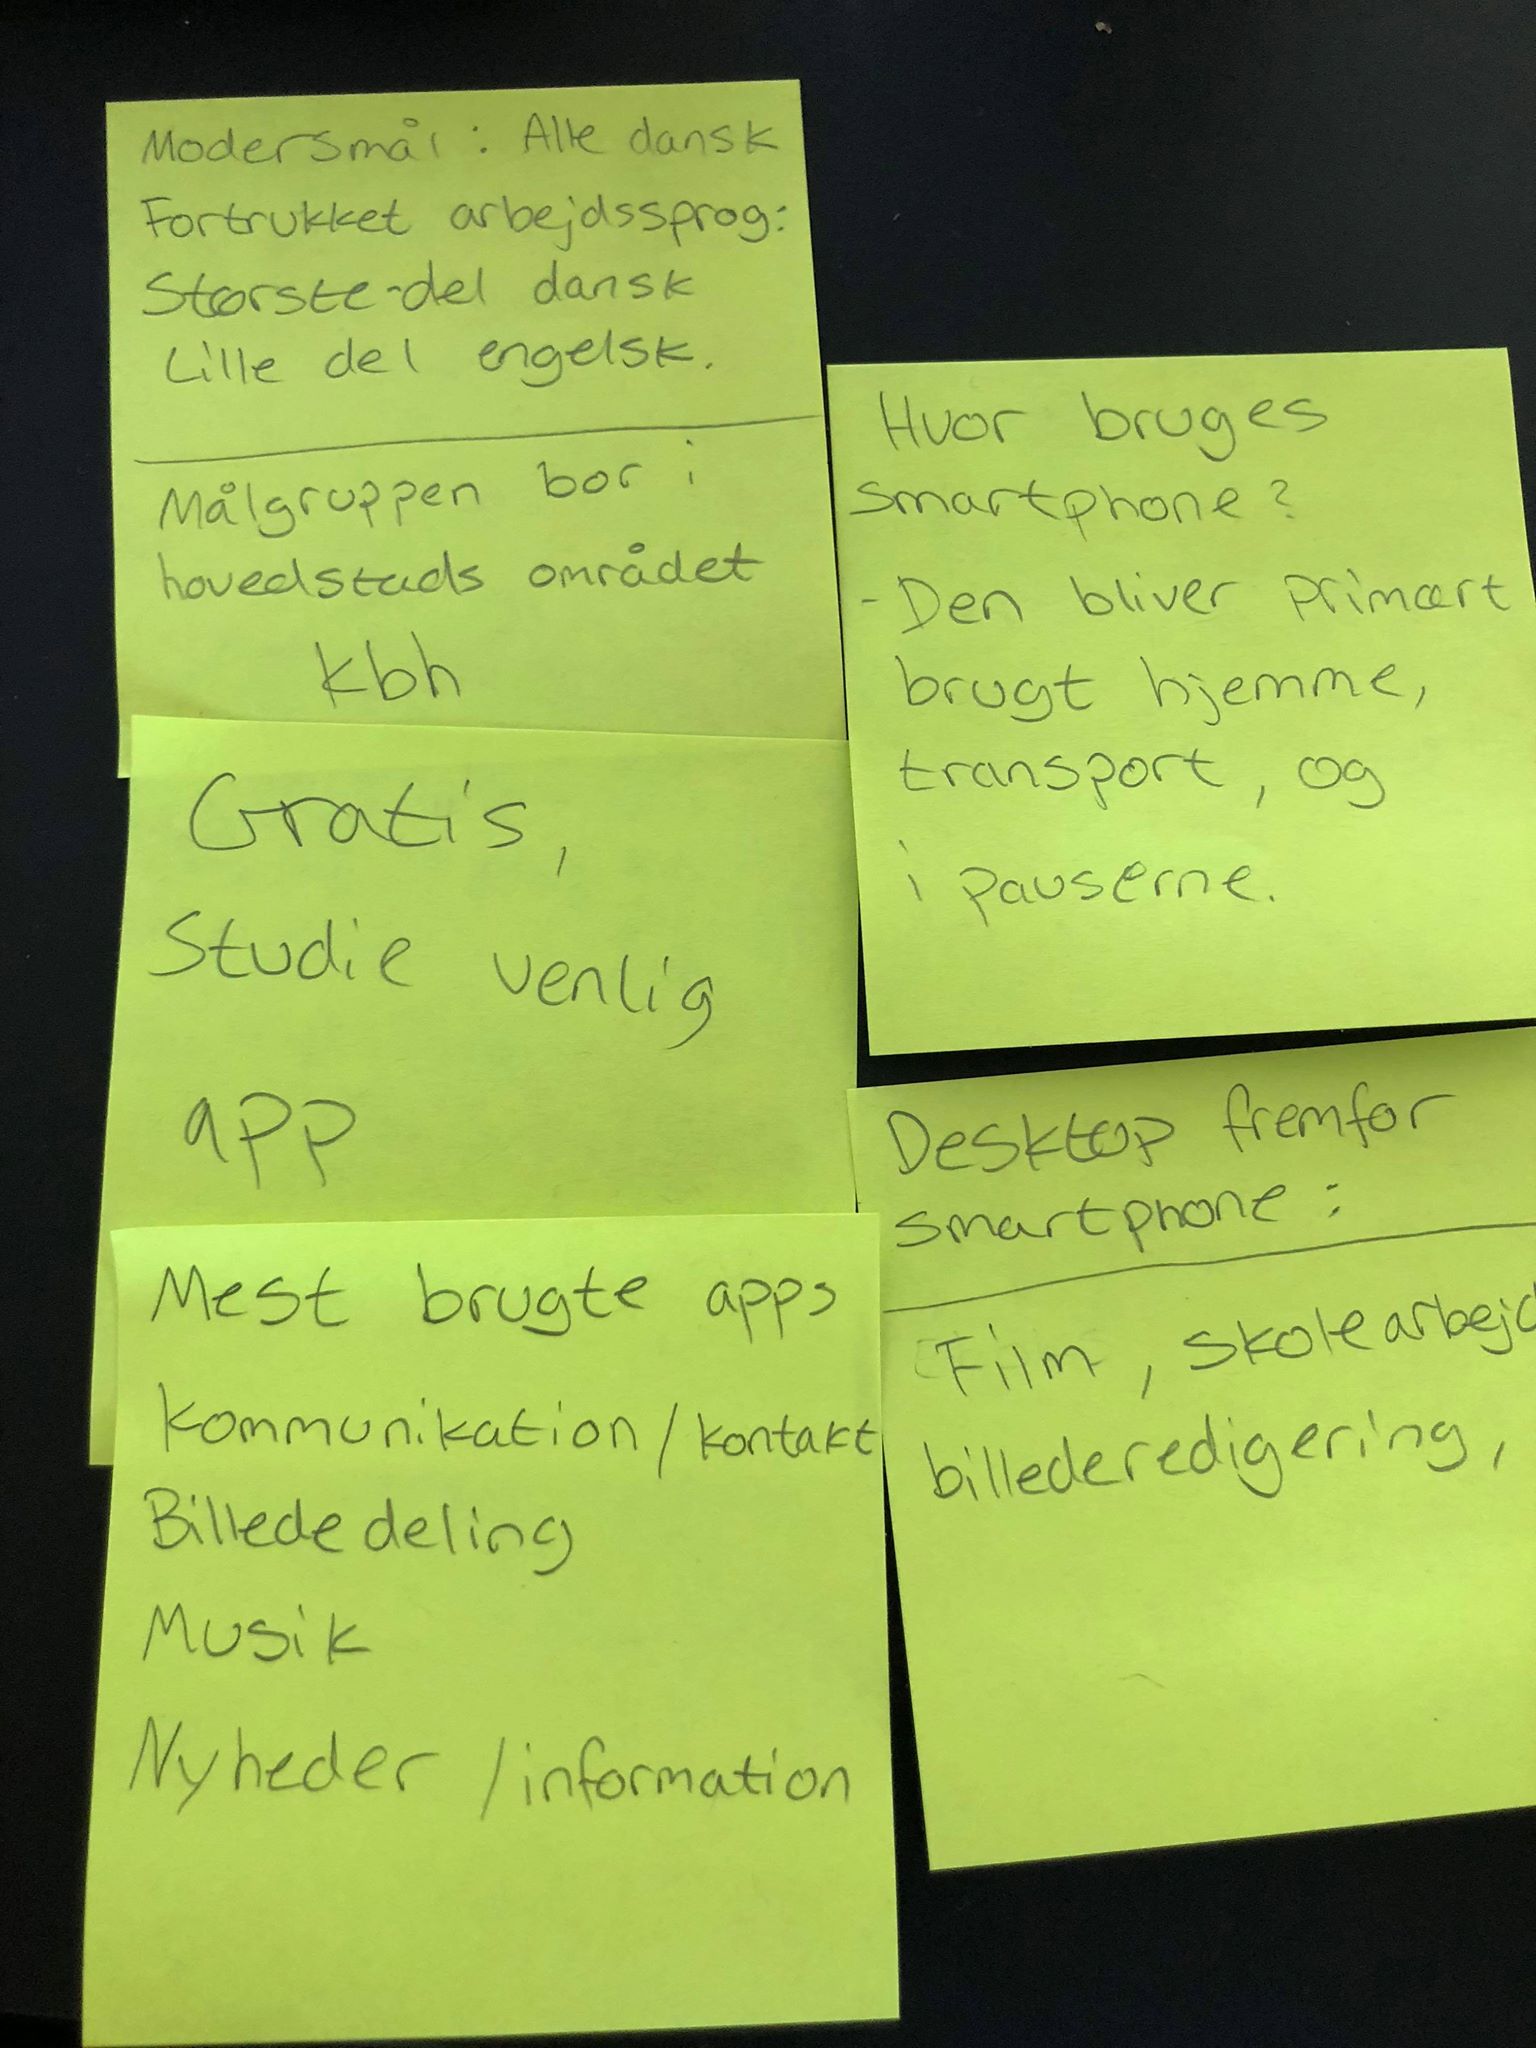 Modersmål : Alle dansk
Fortrukket arbejdssprog:
Største-del dansk
Lille del engelsk.
Målgruppen bor i
hovedstads området
kbh
Gratis,
Studie venlig
app
Mest brugte apps
Kommunikation / kontakt
Billede deling
Musik
Nyheder / information
Hvor bruges
smartphone?
- Den bliver primært
brugt hjemme,
transport, og
i pauserne.
Desktop fremfor
smartphone :
Film, skolearbejd
billederedigering,